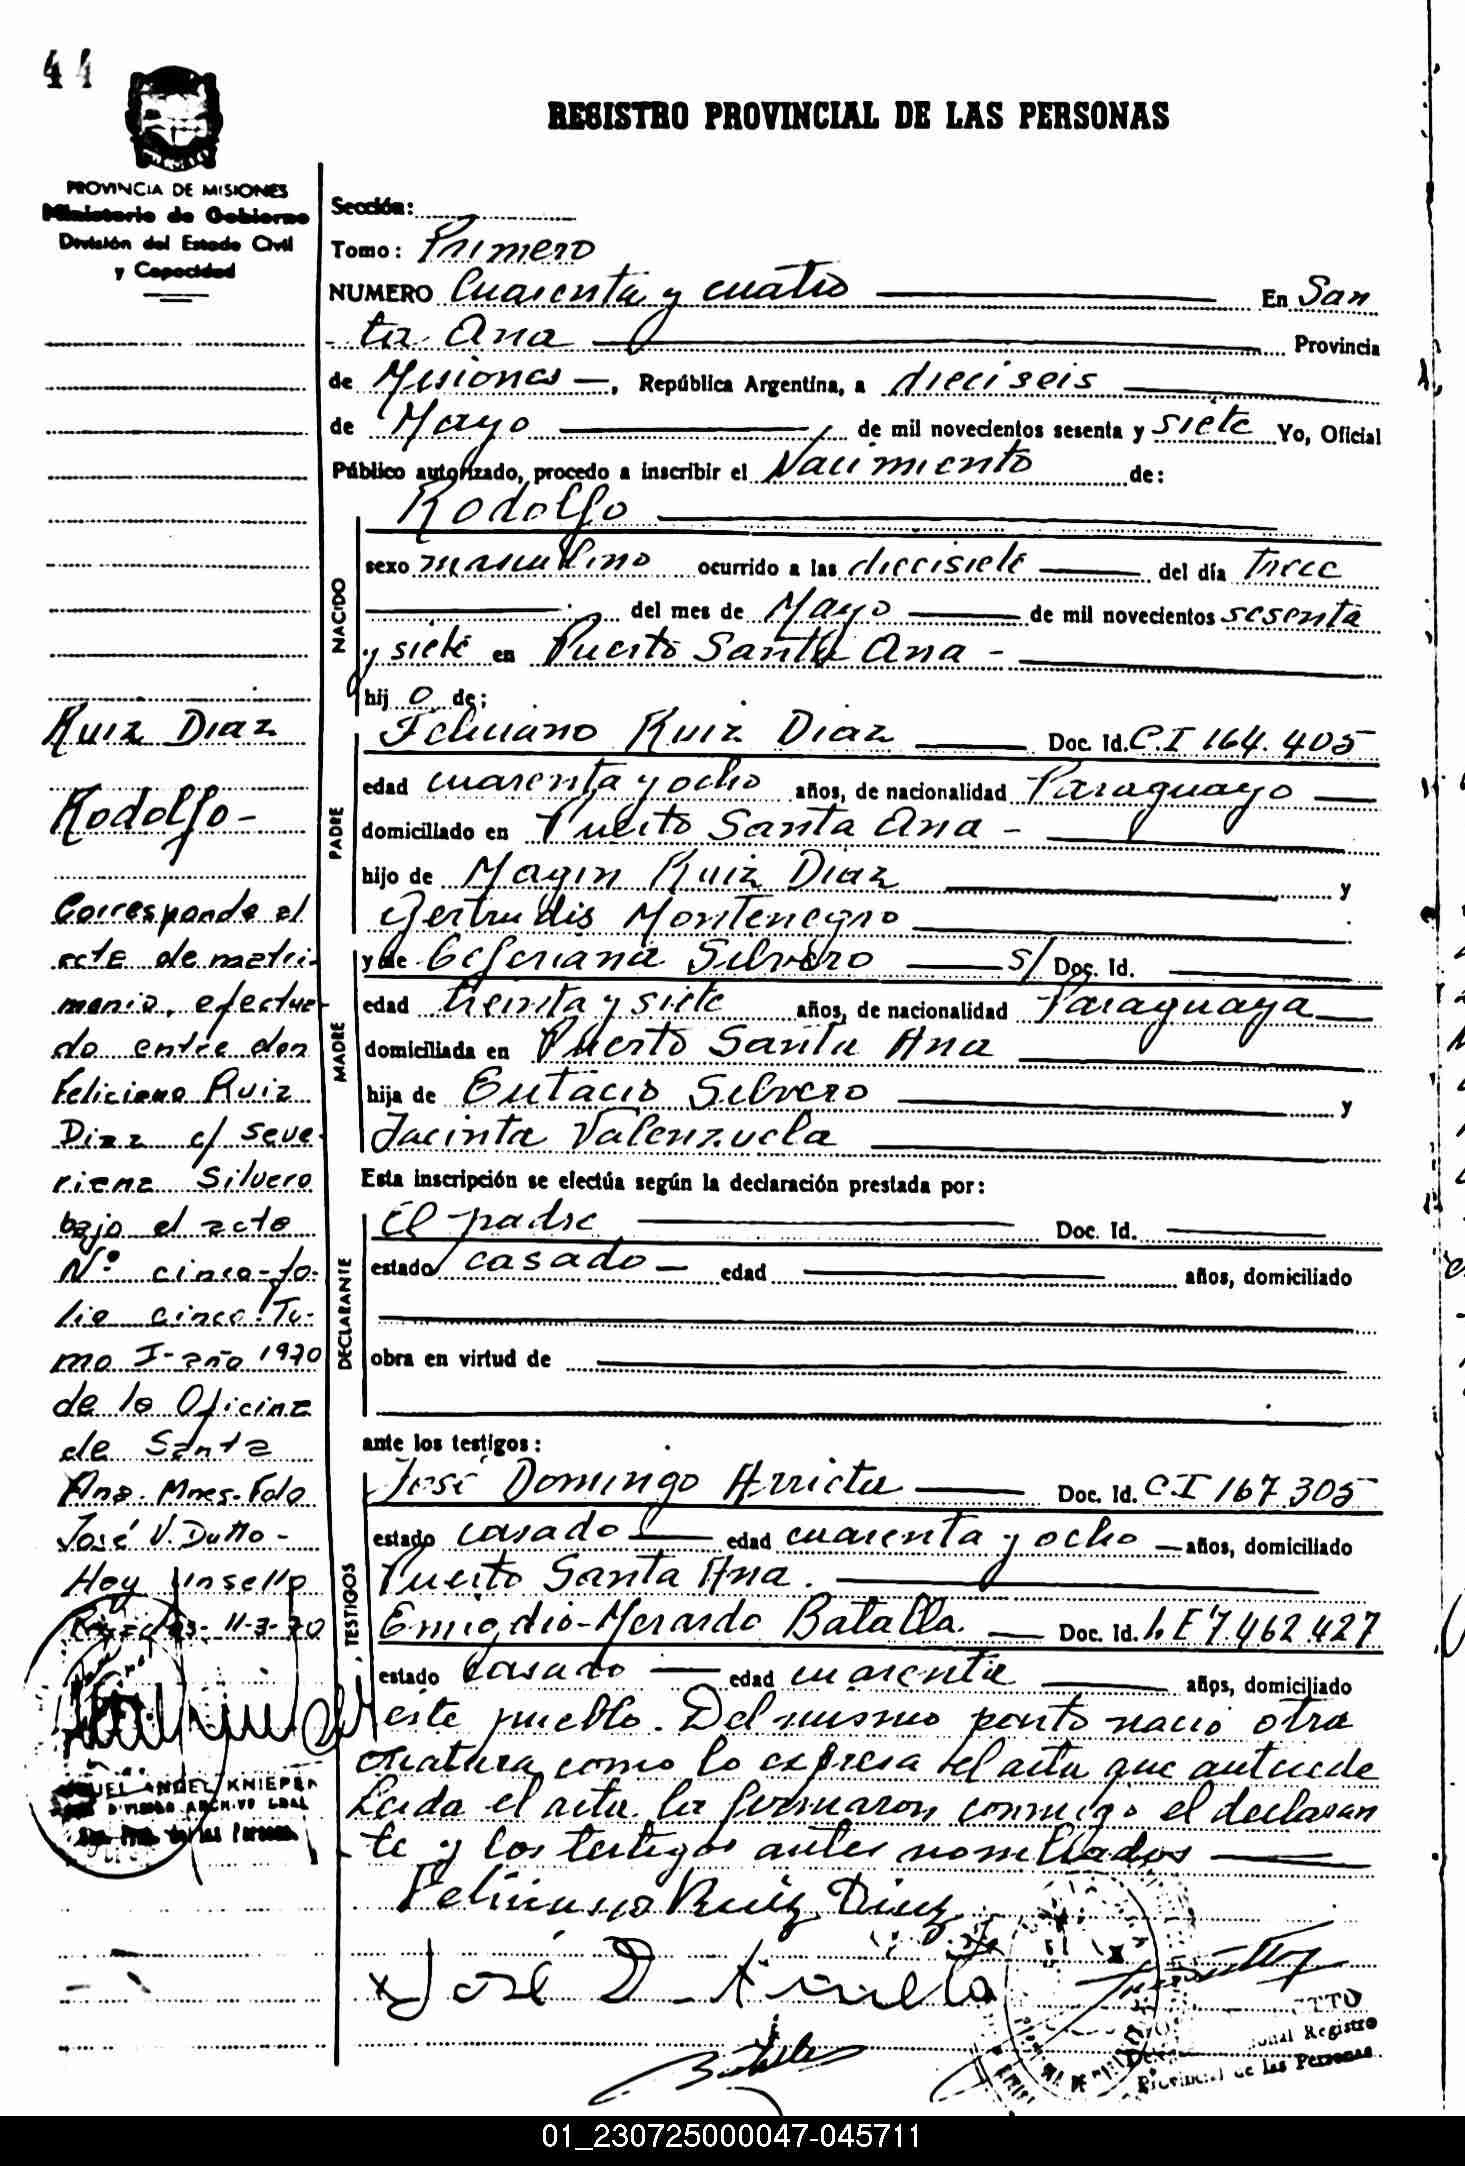 44
REGISTRO PROVINCIAL DE LAS PERSONAS
PROVINCIA DE MISIONES
Ministerio de Gobierno
División del Estado Civil
y Capacidad
Sección:
Tomo: Primero
NUMERO Cuarenta y cuatro En San
ta Ana Provincia
de Misiones, República Argentina, a dieciseis
de Mayo de mil novecientos sesenta y siete Yo, Oficial
Público autorizado, procedo a inscribir el Nacimiento de:
NACIDO
Rodolfo
sexo masculino ocurrido a las diecisiete del día trece
del mes de Mayo de mil novecientos sesenta
y siete en Puerto Santa Ana -
hij o de:
PADRE
Feliciano Ruiz Diaz Doc. Id. C.I 164.405
edad cuarenta y ocho años, de nacionalidad Paraguayo
domiciliado en Puerto Santa Ana -
hijo de Magin Ruiz Diaz y
Gertrudis Montenegro
MADRE
y de Ceferiana Silvero S/ Doc. Id.
edad treinta y siete años, de nacionalidad Paraguaya
domiciliada en Puerto Santa Ana
hija de Eutacio Silvero y
Jacinta Valenzuela
Esta inscripción se efectúa según la declaración prestada por:
DECLARANTE
El padre Doc. Id.
estado casado - edad años, domiciliado
obra en virtud de
ante los testigos:
TESTIGOS
José Domingo Arrieta Doc. Id. C.I 167.305
estado casado edad cuarenta y ocho años, domiciliado
Puerto Santa Ana.
Emigdio-Merardo Batalla. Doc. Id. L.E 7.462.427
estado casado edad cuarenta años, domiciliado
este pueblo. Del mismo parto nació otra
criatura como lo expresa el acta que antecede
Leida el acta la firmaron conmigo el declaran
te y los testigos antes nombrados
Feliciano Ruiz Diaz
x José D. Arrieta
TTO
onal Registro
Provincial de las Personas
Ruiz Diaz
Rodolfo -
Corresponde el
acta de matri-
monio, efectua-
do entre don
Feliciano Ruiz
Diaz c/ Seve-
riana Silvero
bajo el acta
Nº cinco-fo-
lio cinco-To-
mo I-año 1970
de la Oficina
de Santa
Ana. Mnes. Fdo
José V. Dutto -
Hay un sello
11-3-70
ANGEL KNIEPER
DIVISION ARCHIVO GRAL
Reg. Prov. de las Personas
01_230725000047-045711